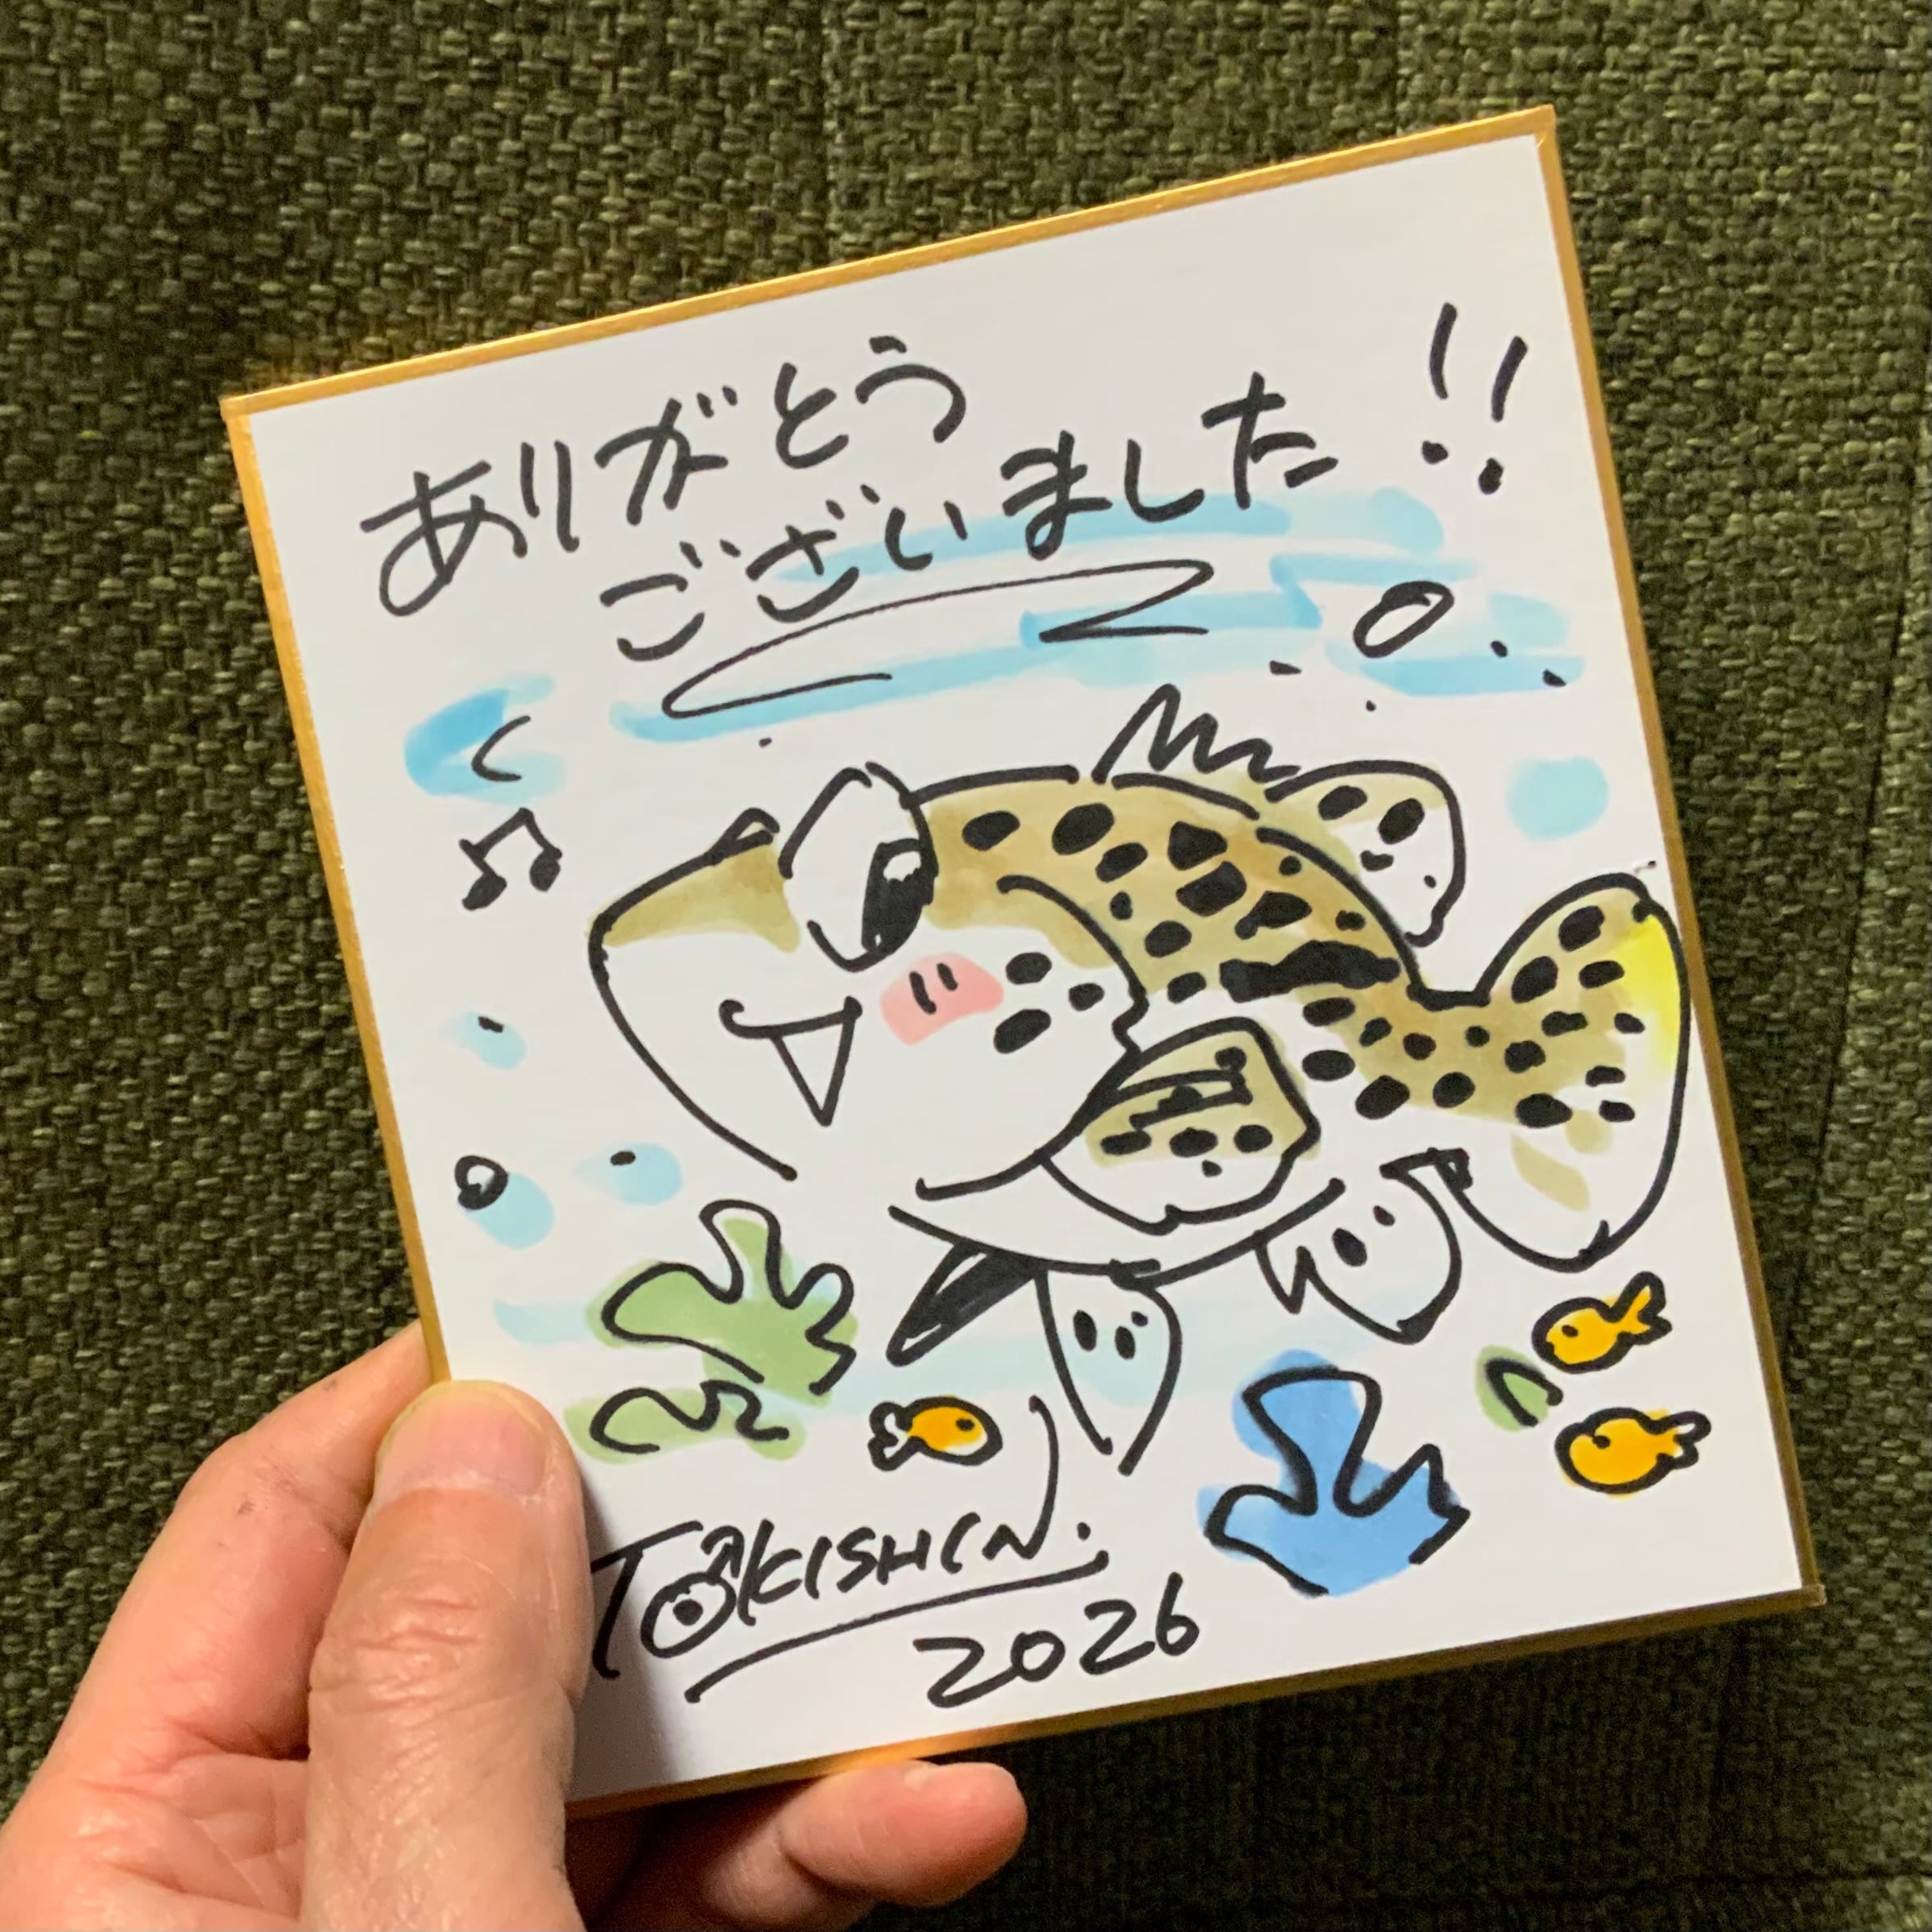 ありがとう
ございました!!
TOKISHIN.
2026